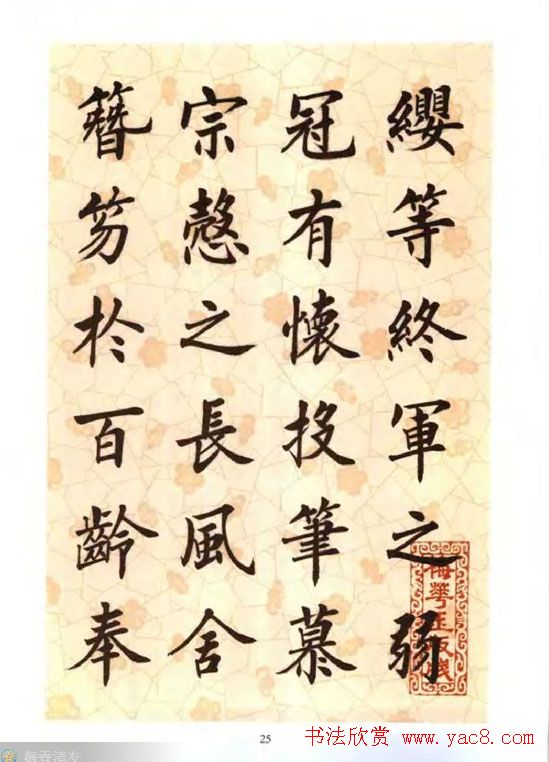 纓等終軍之弱
冠有懷投筆慕
宗慤之長風舍
簪笏於百齡奉
25
书法欣赏 www.yac8.com
梅香清友